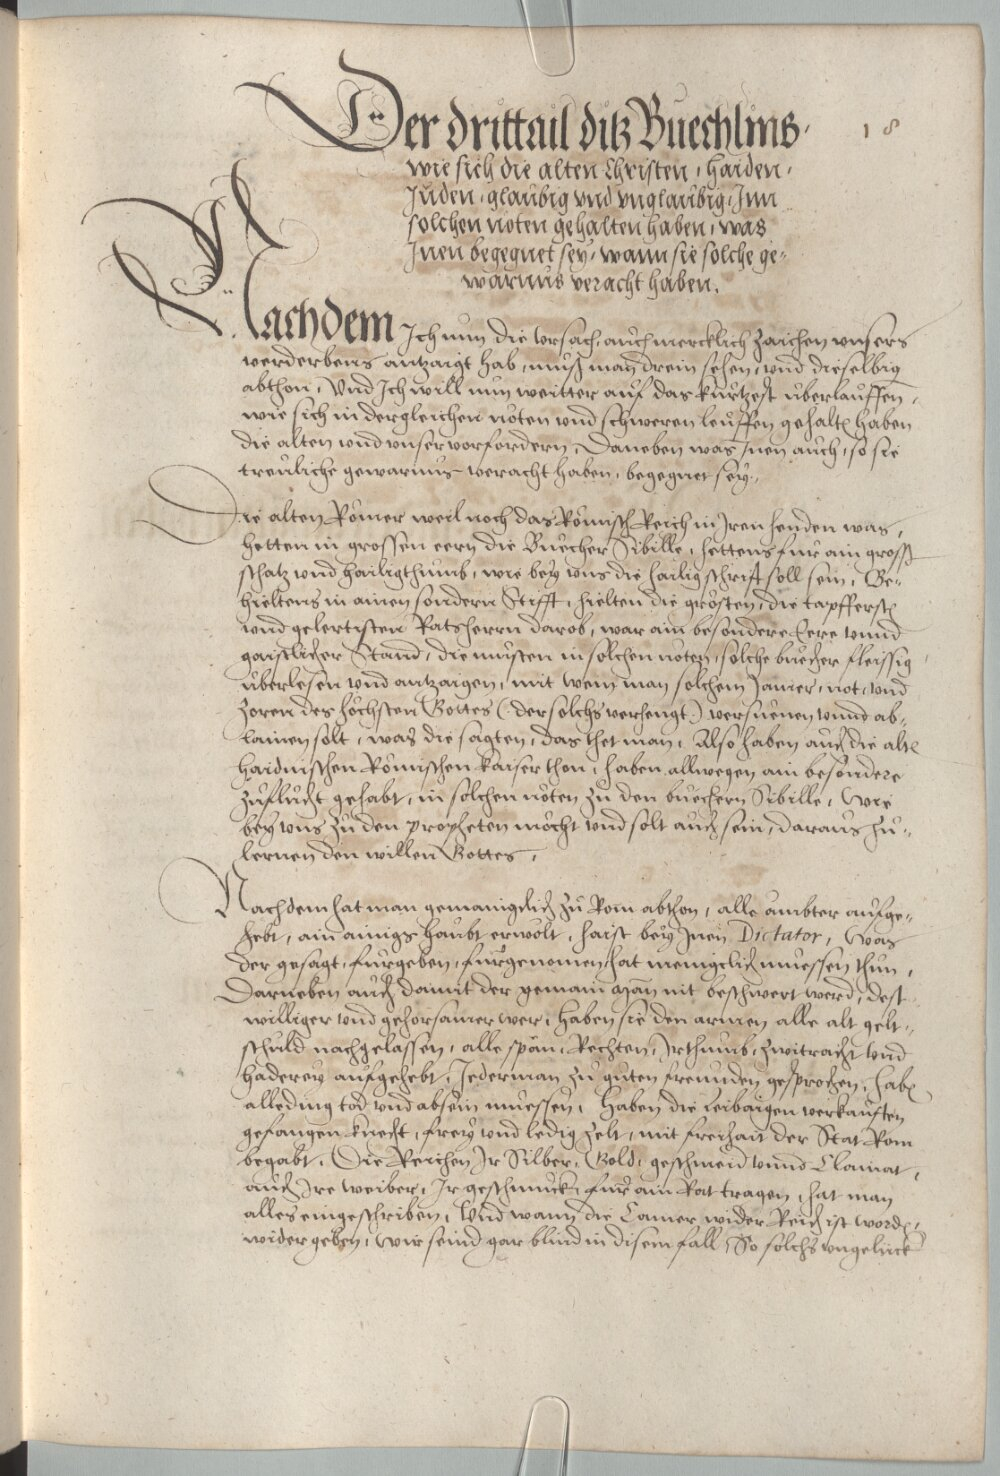 Der drittail ditz Buechlins.
18
wie sich die alten Christen, haiden,
Juden, glaubig vnd vnglaubig, Jnn
solchen nöten gehalten haben, was
Jnen begegnet sey, wann sie solche ge-
warnus veracht haben.
Nachdem Ich nun die vrsach, auch mercklich zaichen vnsers
verderbens antzaigt hab, muß man drein sehen, vnd dieselbig
abthon, Vnd Ich will nun weitter auf das kurtzest überlauffen,
wie sich in dergleichen nöten vnd schweren leuffen gehalten haben
die alten vnd vnser vorfordern, Daneben was Jnen auch, so sie
treuliche gewarnus veracht haben, begegnet sey.
Die alten Römer weil noch das Römisch Reich in Jren henden was,
hetten in grossen eern die Buecher Sibille, hettens fur ain gross
schatz vnd hailigthumb, wie bey vns die hailig schrifft soll sein, Be-
hieltens in ainen sondern Stifft, hielten die grösten, die tapffersten
vnd gelertisten Ratsherrn darob, war ain besondere Eere vnnd
gaistlicher Stand, die musten in solchen nöten, solche buecher fleissig
überlesen vnd antzaigen, mit wem man solchem Jamer, not, vnd
zoren des höchsten Gottes (der solchs verhengt) versuenen vnnd ab-
lainen solt, was die sagten, das thet man, Also haben auch die alten
haidnischen Römischen kaiser thon, haben allwegen ain besondere
zuflucht gehabt, in solchen nöten zu den buechern Sibille, Wie
bey vns zu den propheten möcht vnd solt auch sein, daraus zu-
lernen den willen Gottes,
Nachdem hat man gemainigclich zu Rom abthon, alle ämbter aufge-
hebt, ain ainigs haubt erwölt, haist bey Jnen Dictator, Was
der gesagt, furgeben, furgenomen hat menigclich muessen thun,
Darneben auch damit der gemain Man nit beschwert werd, dest
williger vnd gehorsamer wer, haben sie den armen alle alt gelt-
schuld nachgelassen, alle spän, Rechten, Jrthumb, zwitracht vnd
haderey aufgehebt, Jederman zu guten freunden gesprochen, haben
alleding tod vnd absein muessen, Haben die leibaigen verkaufften
gefangen knecht, frey vnd ledig zelt, mit freihait der Stat Rom
begabt, Die Reichen Jr Silber, Gold, geschmeid vnnd Clainat,
auch Jre weiber, Jr geschmuck, fur ain Rat tragen, hat man
alles eingeschriben, Vnd wann die Camer wider Reich ist worden,
widergeben, Wir seind gar blind in disem fall, So solchs vngelück